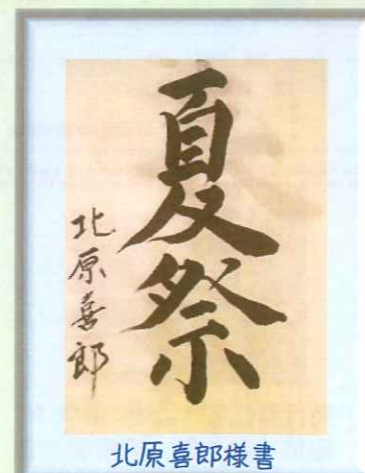 夏祭
北原喜郎
北原喜郎様書